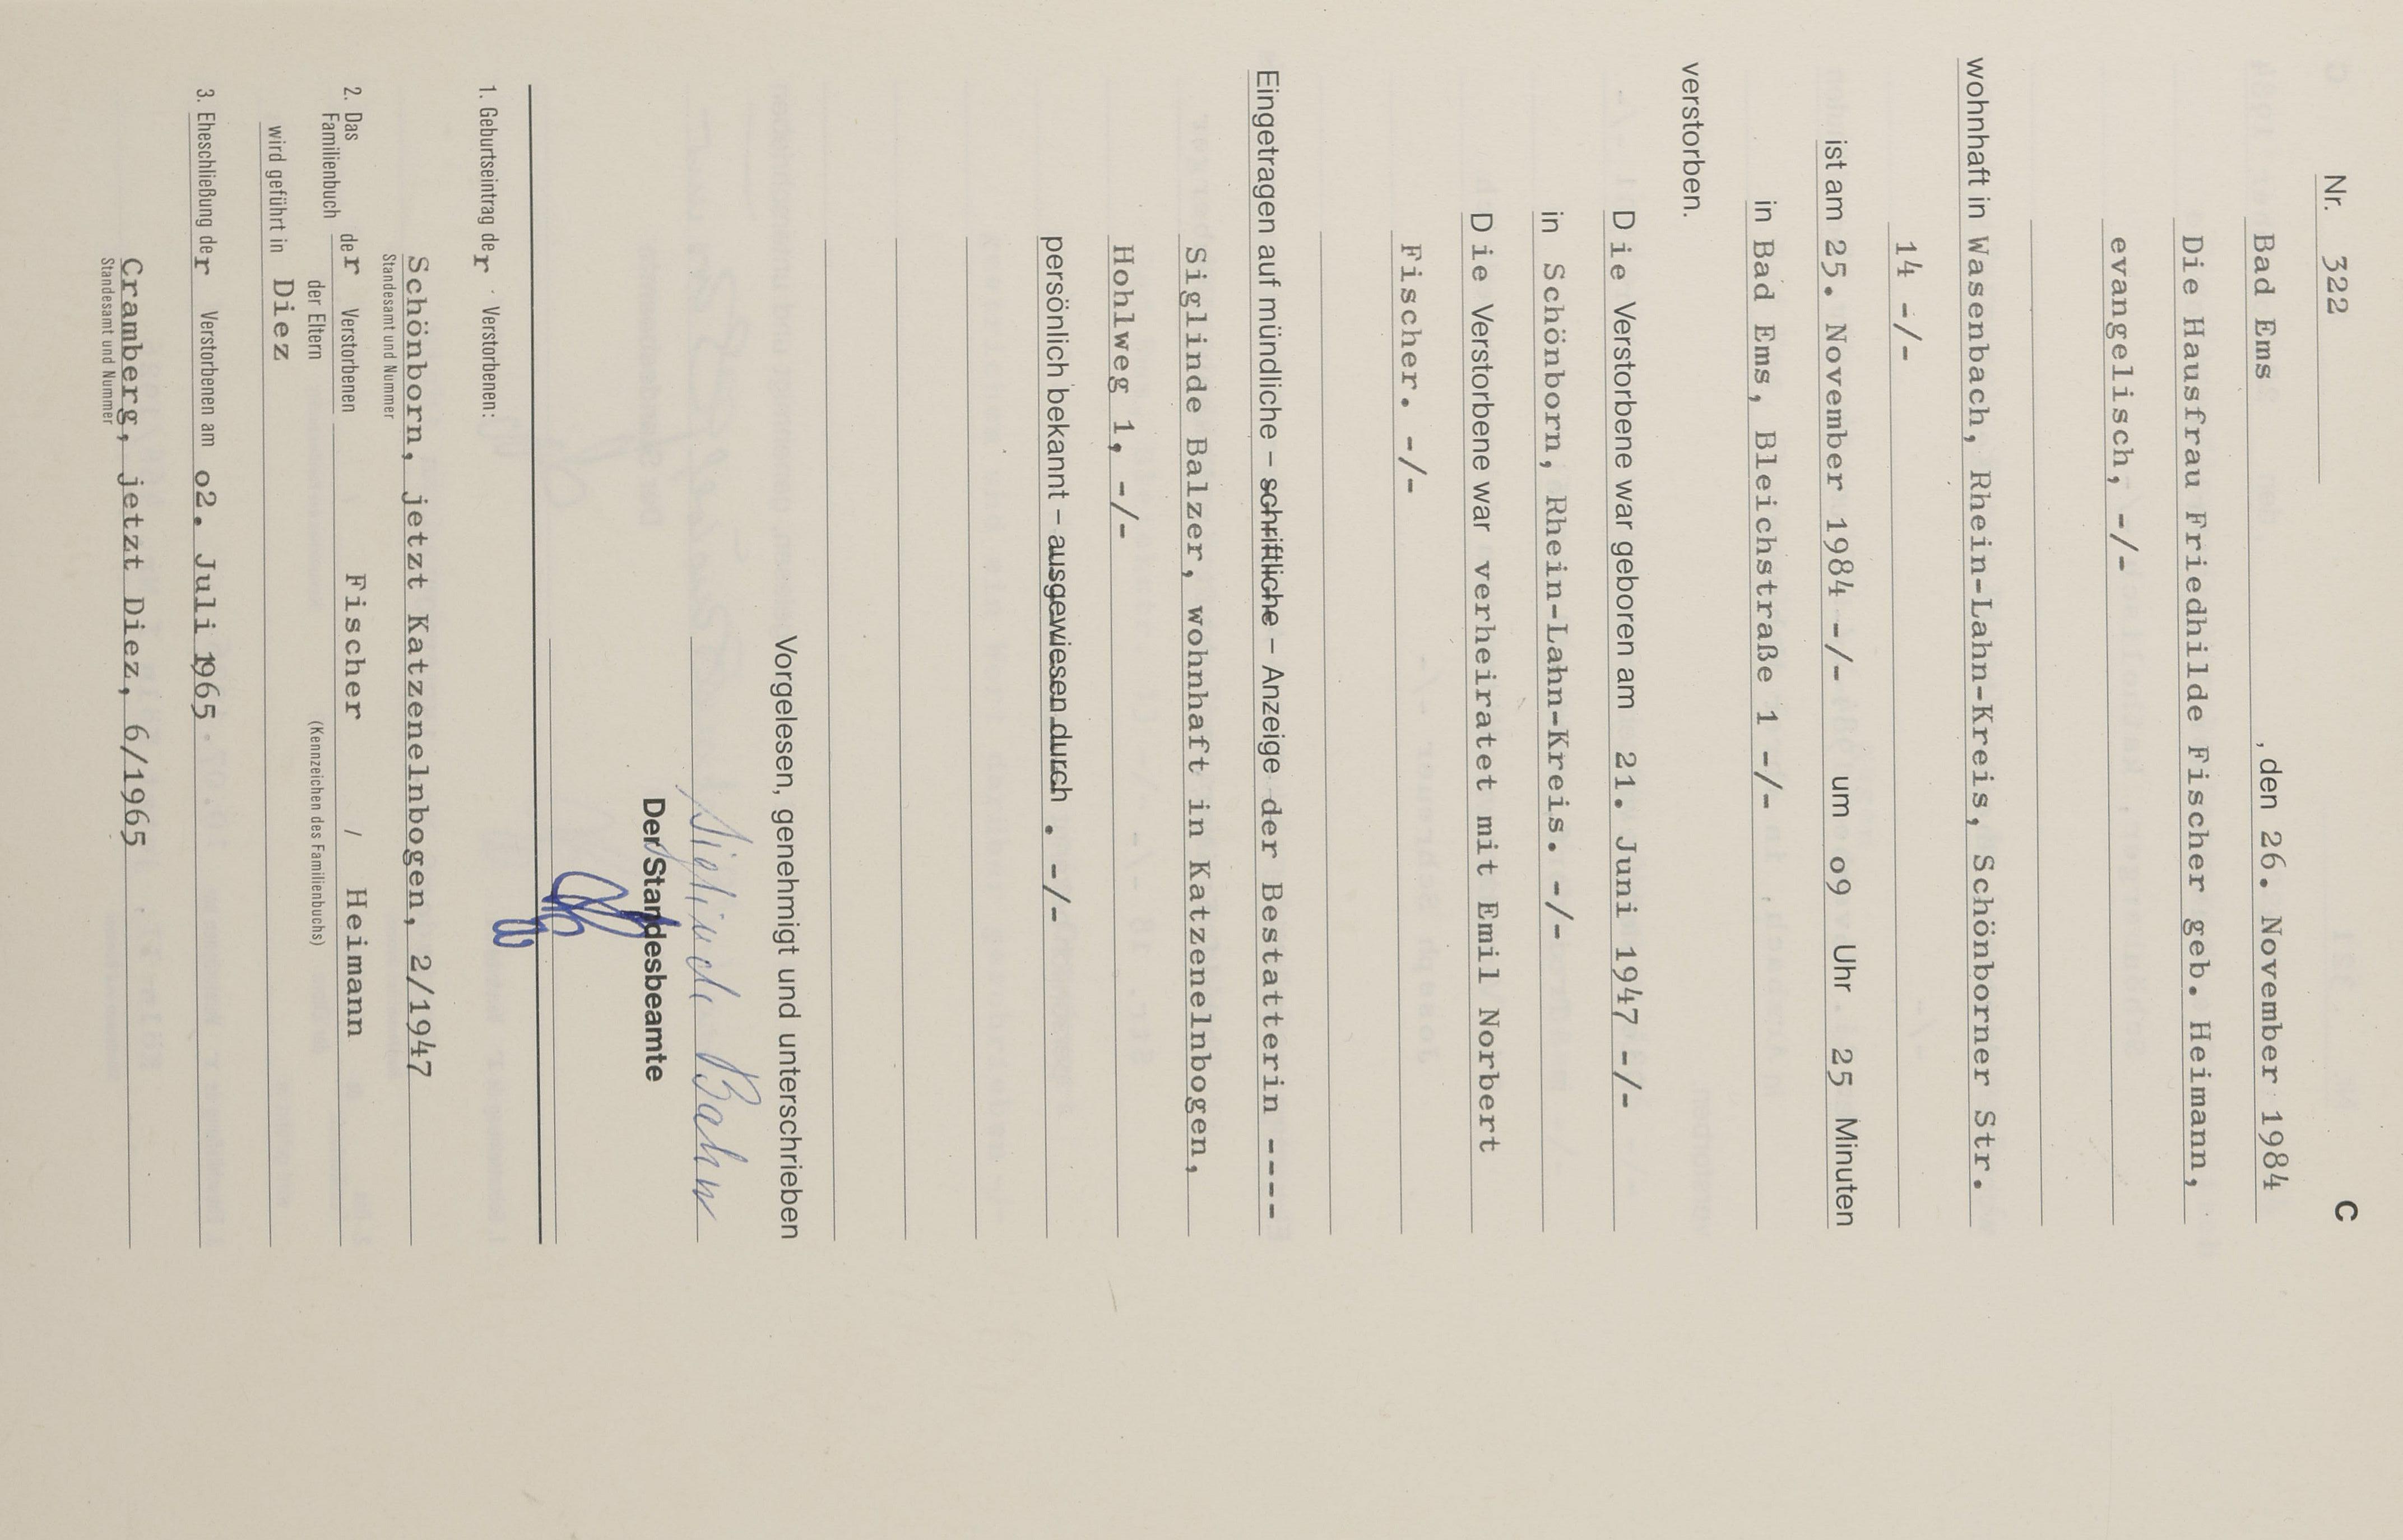 C
Nr. 322
Bad Ems, den 26. November 1984
Die Hausfrau Friedhilde Fischer geb. Heimann,
evangelisch, -/-
wohnhaft in Wasenbach, Rhein-Lahn-Kreis, Schönborner Str.
14 -/-
ist am 25. November 1984 -/- um o9 Uhr 25 Minuten
in Bad Ems, Bleichstraße 1 -/-
verstorben.
Die Verstorbene war geboren am 21. Juni 1947 -/-
in Schönborn, Rhein-Lahn-Kreis. -/-
Die Verstorbene war verheiratet mit Emil Norbert
Fischer. -/-
Eingetragen auf mündliche – schriftliche – Anzeige der Bestatterin ----
Siglinde Balzer, wohnhaft in Katzenelnbogen,
Hohlweg 1, -/-
persönlich bekannt – ausgewiesen durch . -/-
Vorgelesen, genehmigt und unterschrieben
Siglinde
Der Standesbeamte
1. Geburtseintrag der Verstorbenen:
Schönborn, jetzt Katzenelnbogen, 2/1947
Standesamt und Nummer
2. Das Familienbuch der Verstorbenen Fischer / Heimann
der Eltern (Kennzeichen des Familienbuchs)
wird geführt in Diez
3. Eheschließung der Verstorbenen am o2. Juli 1965
Cramberg, jetzt Diez, 6/1965
Standesamt und Nummer